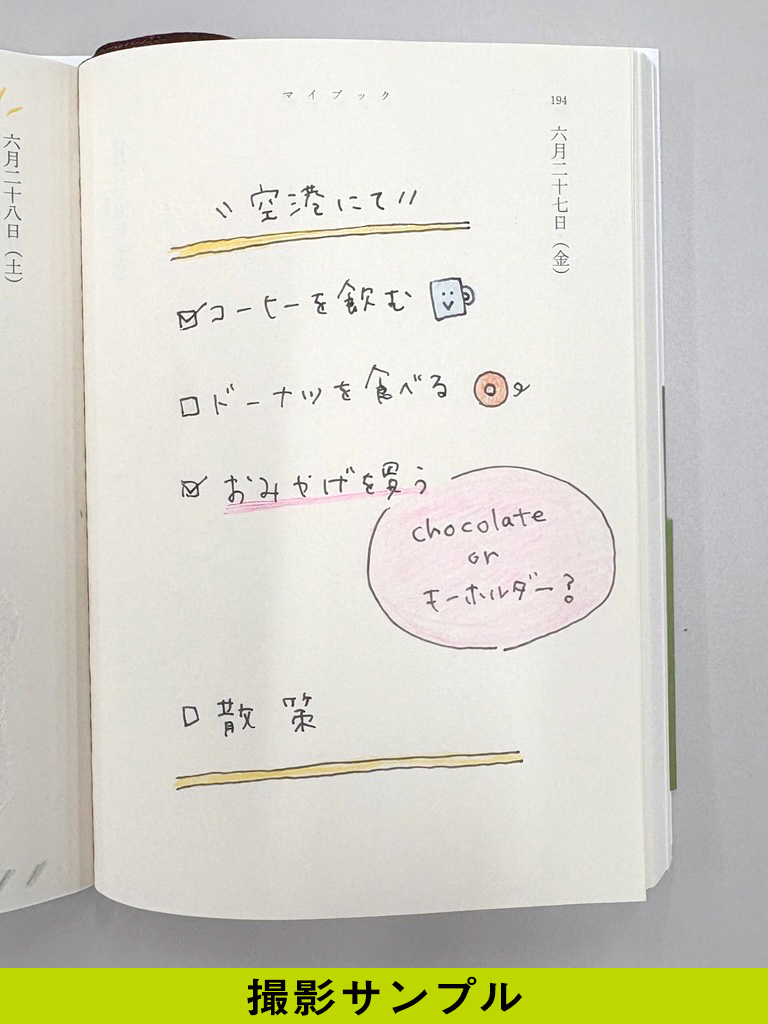 マイブック
194
六月二十七日(金)
六月二十八日(土)
空港にて
コーヒーを飲む
ドーナツを食べる
おみやげを買う
chocolate
or
キーホルダー?
散策
撮影サンプル